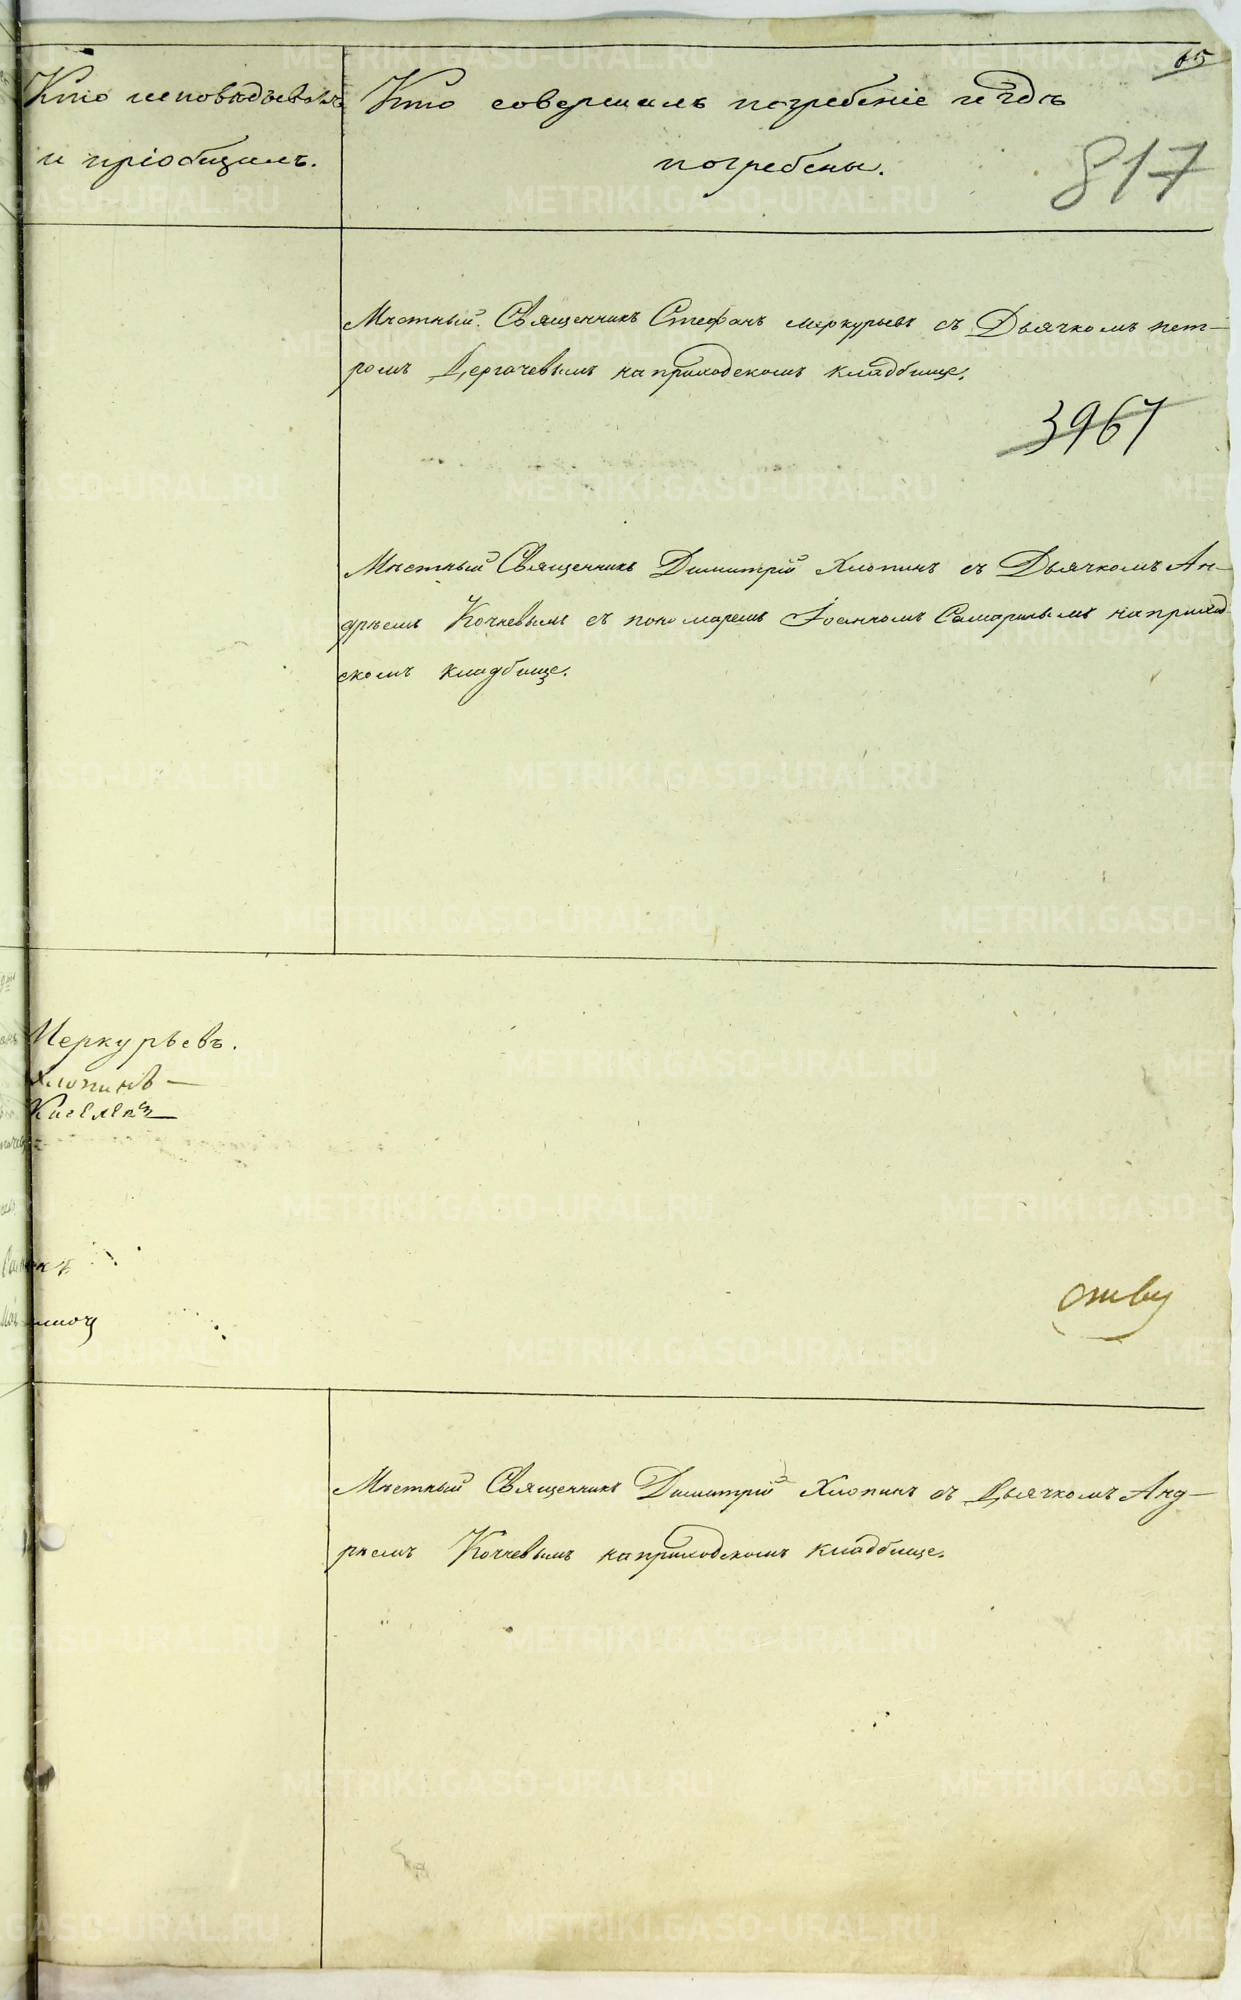 65
Кто исповѣдывалъ
и пріобщилъ.
Кто совершалъ погребеніе и гдѣ
погребены.
817
Мѣстный Священникъ Стефанъ Меркурьевъ съ Дьячкомъ Пет-
ромъ Дергачевымъ на приходскомъ кладбище.
3967
Мѣстный Священникъ Димитрій Хлопинъ съ Дьячкомъ Ан-
дрѣемъ Кочневымъ съ пономаремъ Іоанномъ Самаринымъ на приход
скомъ кладбище.
Меркурьевъ.
Хлопинъ
Киселевъ
Мѣстный Священникъ Димитрій Хлопинъ съ Дьячкомъ Анд-
рѣемъ Кочневымъ на приходскомъ кладбище.
METRIKI.GASO-URAL.RU